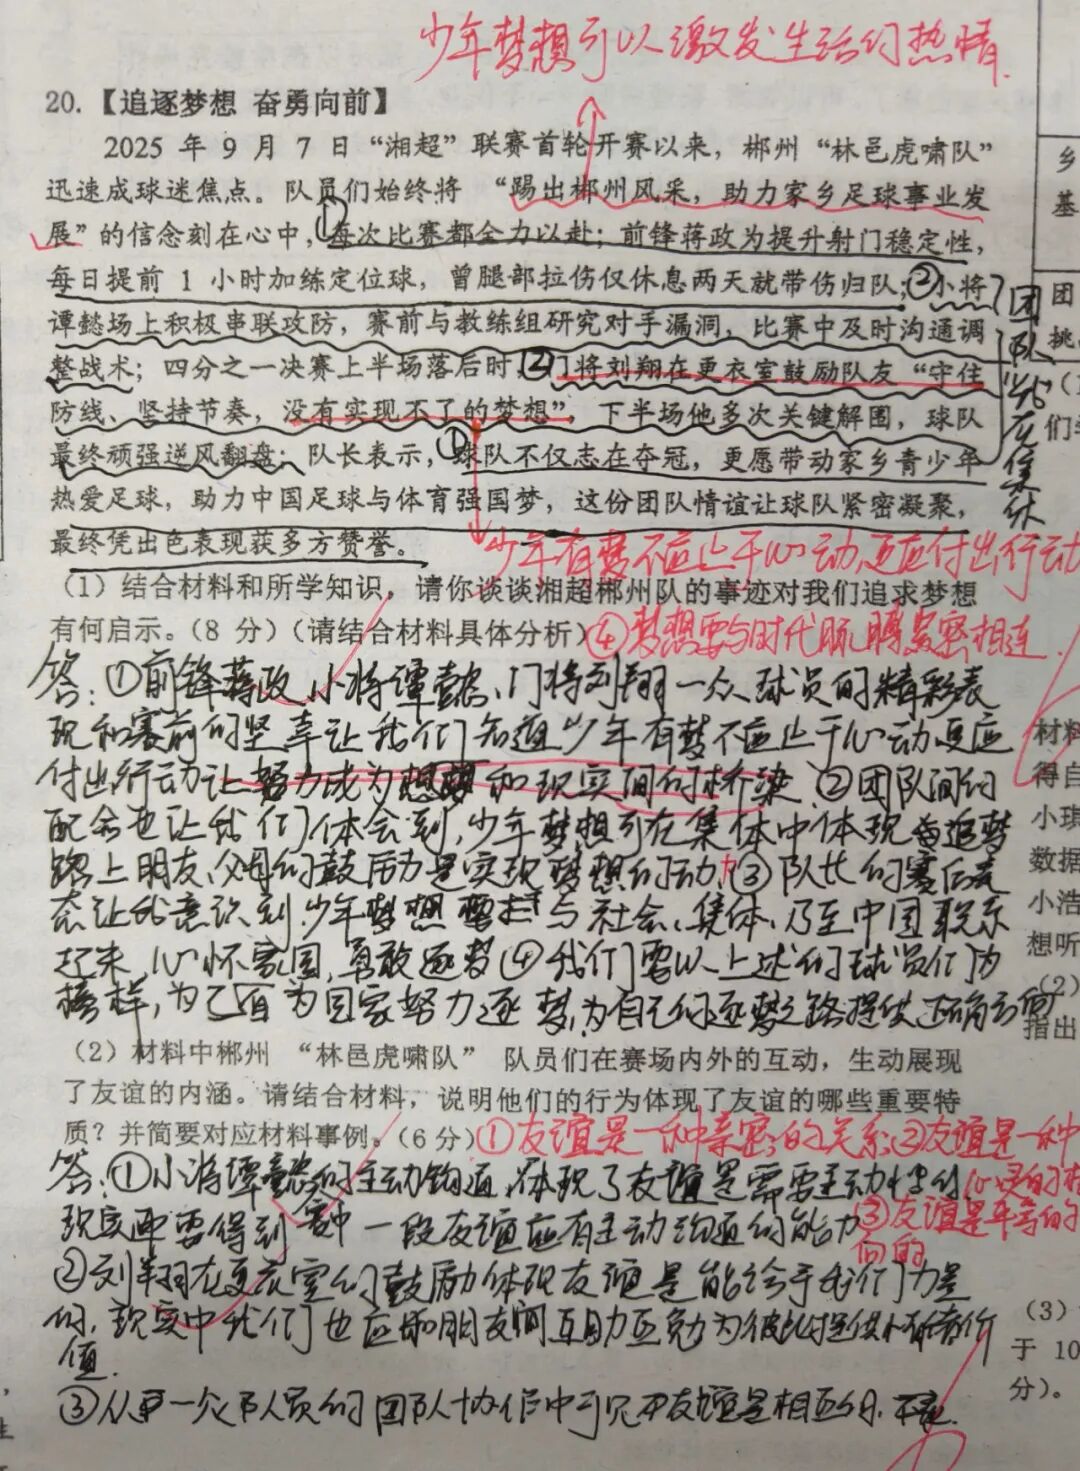 少年梦想可以激发生活的热情.
20.【追逐梦想 奋勇向前】
2025 年 9 月 7 日“湘超”联赛首轮开赛以来，郴州“林邑虎啸队”
迅速成球迷焦点。队员们始终将 “踢出郴州风采，助力家乡足球事业发
展”的信念刻在心中，①每次比赛都全力以赴；前锋蒋政为提升射门稳定性，
每日提前 1 小时加练定位球，曾腿部拉伤仅休息两天就带伤归队；②小将
谭懿场上积极串联攻防，赛前与教练组研究对手漏洞，比赛中及时沟通调
整战术；四分之一决赛上半场落后时，②门将刘翔在更衣室鼓励队友“守住
防线、坚持节奏，没有实现不了的梦想”，下半场他多次关键解围，球队
最终顽强逆风翻盘；队长表示，①球队不仅志在夺冠，更愿带动家乡青少年
热爱足球，助力中国足球与体育强国梦，这份团队情谊让球队紧密凝聚，
最终凭出色表现获多方赞誉。
团队
集体
少年有梦不应止于心动,更应付出行动
（1）结合材料和所学知识，请你谈谈湘超郴州队的事迹对我们追求梦想
有何启示。（8 分）（请结合材料具体分析）
④梦想要与时代脉搏紧密相连.
答:①前锋蒋政、小将谭懿、门将刘翔一众球员的精彩表
现和赛前的坚幸让我们知道少年有梦不应止于心动更应
付出行动让努力成为想和现实间的桥梁.②团队间的
配合也让我们体会到,少年梦想可在集体中体现追梦
路上朋友、父母的鼓励是实现梦想的动力③队长的赛后表
态让我意识到少年梦想要与社会、集体、乃至中国联系
起来,心怀家国,勇敢逐梦④我们要以上述的球员们为
榜样,为己有为国家努力逐梦,为自己的逐梦之路提供正确方向
（2）材料中郴州 “林邑虎啸队” 队员们在赛场内外的互动，生动展现
了友谊的内涵。请结合材料，说明他们的行为体现了友谊的哪些重要特
质？并简要对应材料事例。（6 分）
①友谊是一种亲密的关系②友谊是一种
心灵的相
③友谊是平等的
向的
答:①小将谭懿的主动沟通,体现了友谊是需要主动付出
现实中要得到一段友谊应有主动沟通的能力
②刘翔在更衣室的鼓励体现友谊是能给予我们力量
的,现实中我们也应和朋友间互助互勉为彼此提供情绪价
值.
③从一众队员的团队协作中可见友谊是相互的.
乡
基
团
挑
们
材料
得自
小琪
数据
小浩
想听
（2）
指出
（3）
于 10
分）。